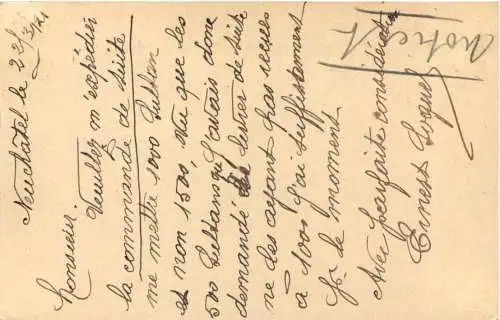 Neuchâtel le 22/3/21
Monsieur.
Veuillez m'expédier
la commande de suite
me mettre 1000 Sultan
et non 1500, vu que les
500 Sultans que j'avais donc
demandé livrer de suite
ne les ayant pas reçues
à 1000 j'ai suffisamment
pr le moment.
Avec parfaite considération
Ernest